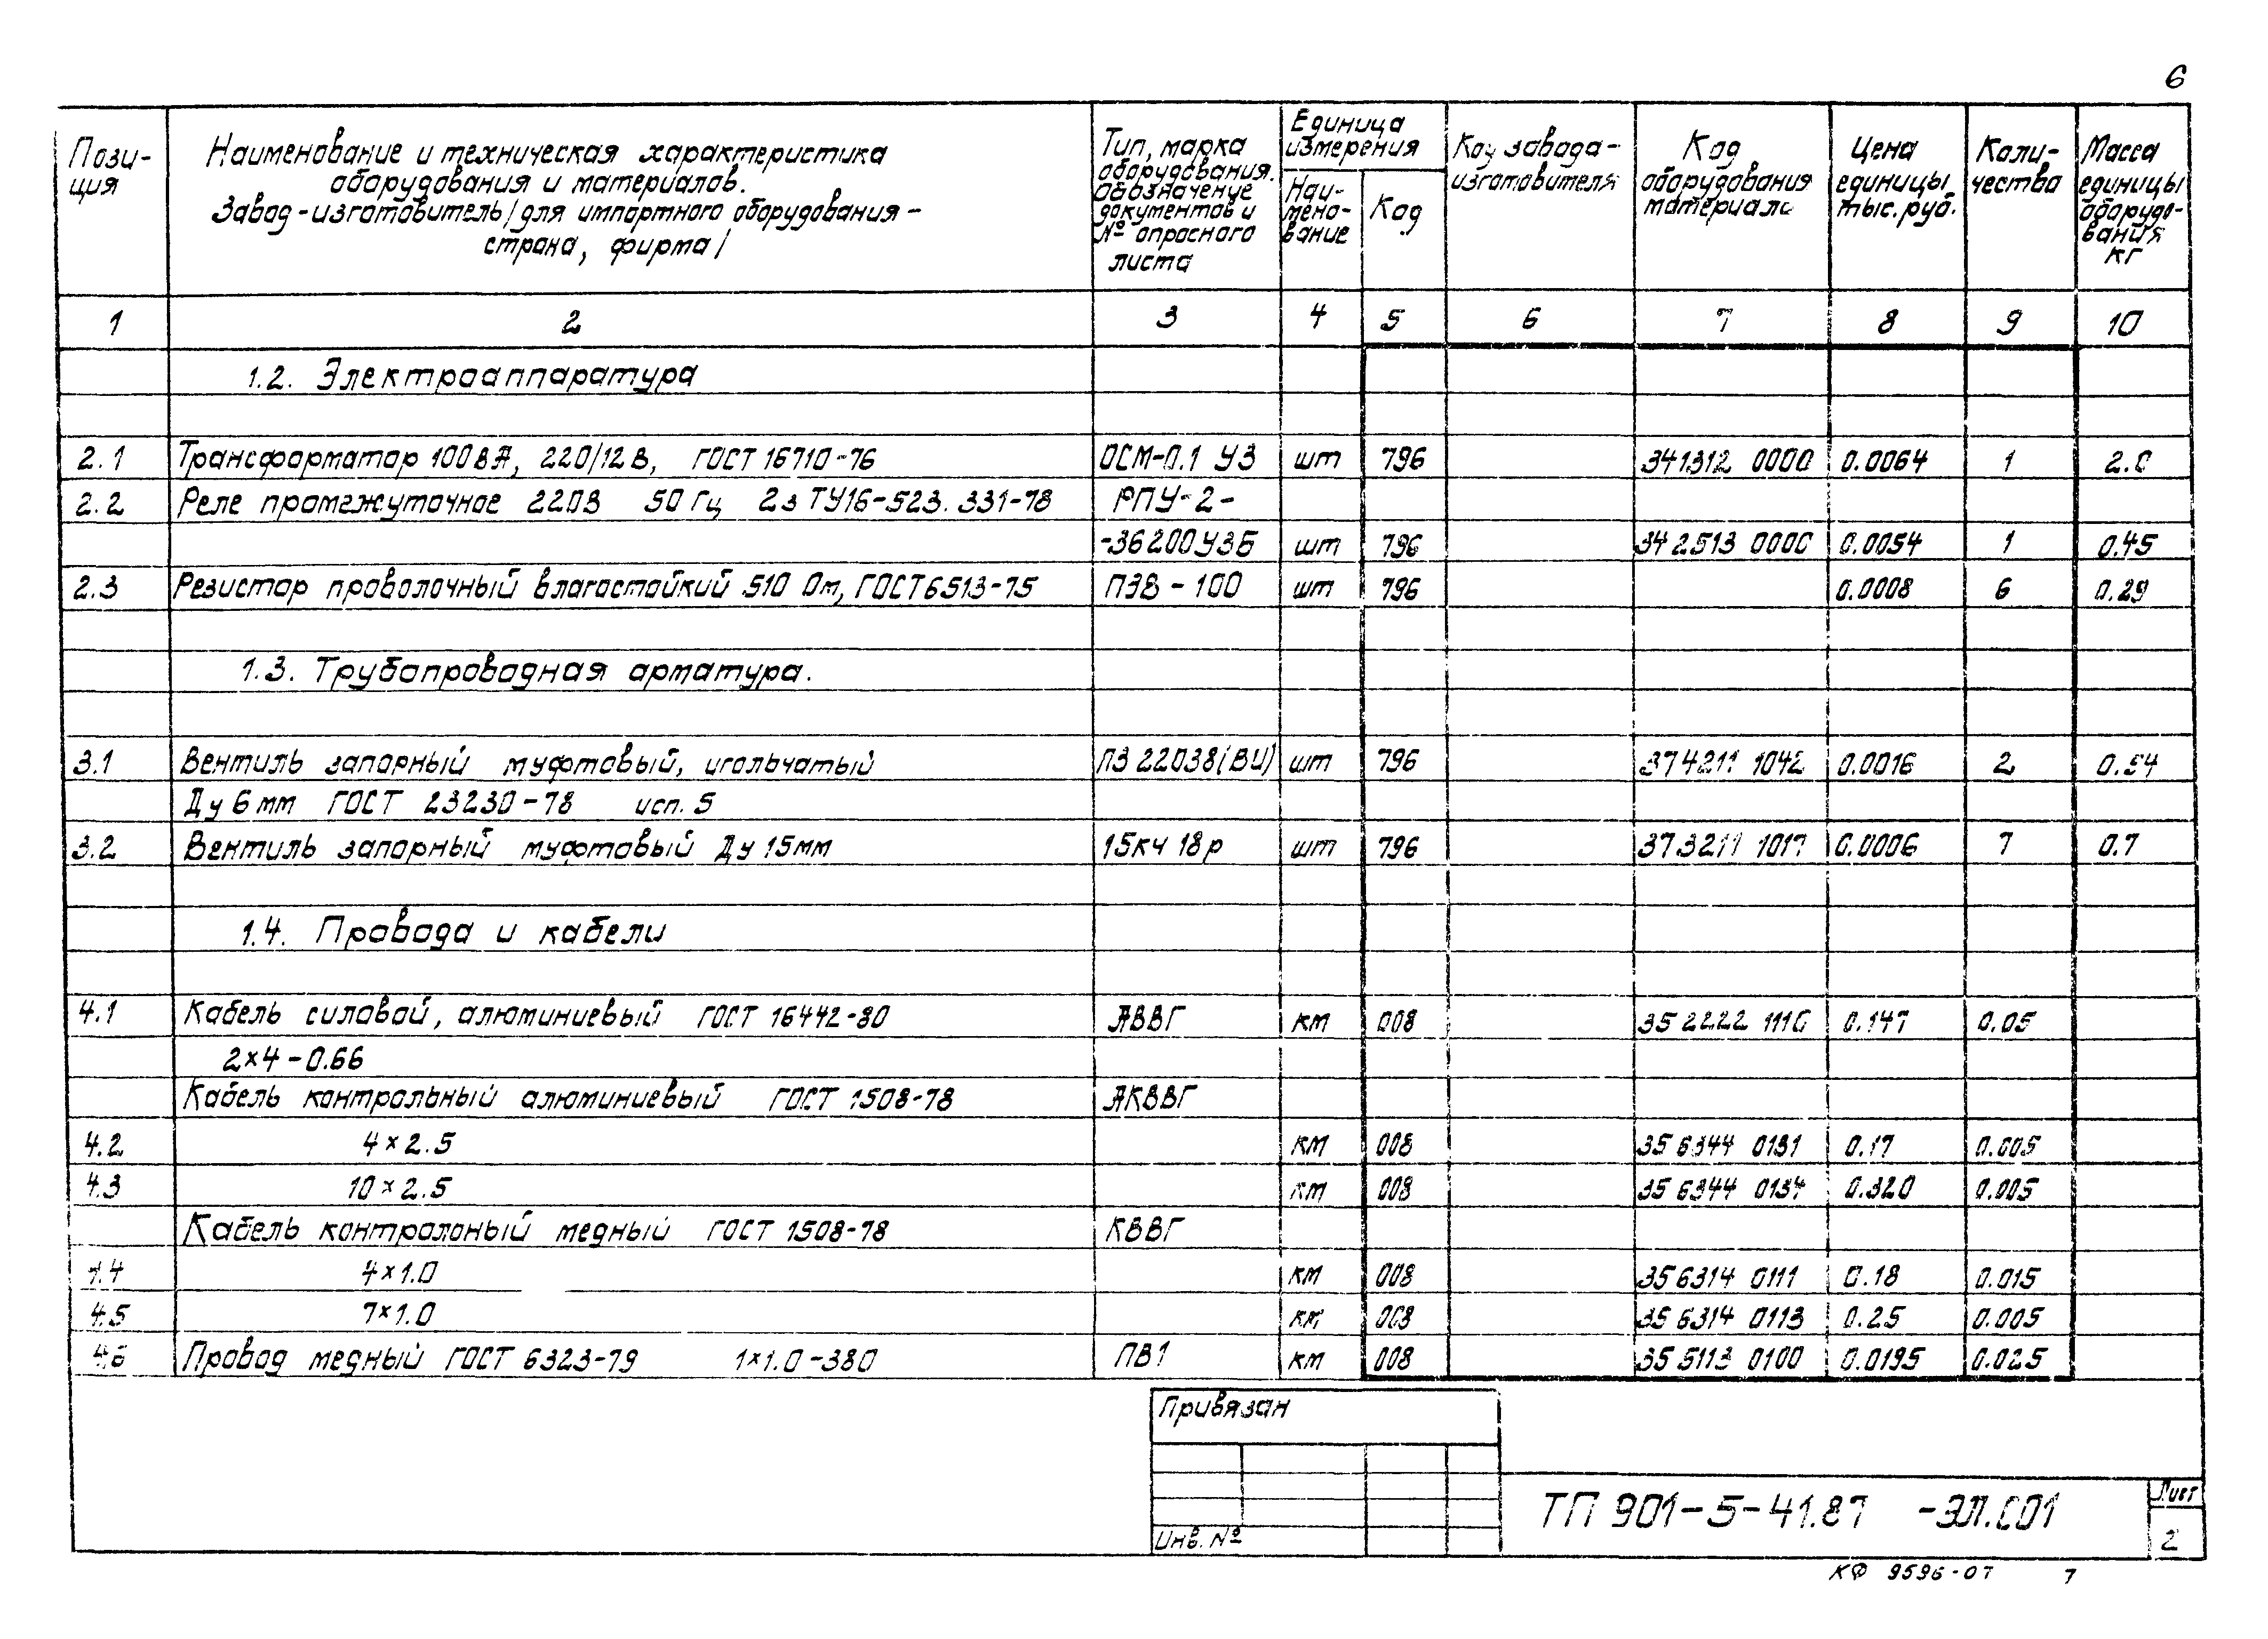 6
Пози-
ция
Наименование и техническая характеристика
оборудования и материалов.
Завод-изготовитель/для импортного оборудования-
страна, фирма/
Тип, марка
оборудования.
Обозначение
документов и
№ опросного
листа
Единица
измерения
Наи-
мено-
вание
Код
Код завода-
изготовителя
Код
оборудования
материала
Цена
единицы
тыс.руб.
Коли-
чество
Масса
единицы
оборудо-
вания
кг
1 2 3 4 5 6 7 8 9 10
1.2. Электроаппаратура
2.1 Трансформатор 100ВА, 220/12В, ГОСТ 16710-76 ОСМ-0.1 У3 шт 796 341312 0000 0.0064 1 2.0
2.2 Реле промежуточное 220В 50Гц 2з ТУ16-523.331-78 РПУ-2-
-36200У3Б шт 796 342513 0000 0.0054 1 0.45
2.3 Резистор проволочный влагостойкий 510 Ом, ГОСТ6513-75 ПЭВ-100 шт 796 0.0008 6 0.29
1.3. Трубопроводная арматура.
3.1 Вентиль запорный муфтовый, игольчатый ПЗ 22038(ВИ) шт 796 374211 1042 0.0016 2 0.54
Ду 6мм ГОСТ 23230-78 исп. 5
3.2 Вентиль запорный муфтовый Ду 15мм 15кч 18р шт 796 373211 1017 0.0006 7 0.7
1.4. Провода и кабели
4.1 Кабель силовой, алюминиевый ГОСТ 16442-80 АВВГ км 008 35 2222 1110 0.147 0.05
2×4-0.66
Кабель контрольный алюминиевый ГОСТ 1508-78 АКВВГ
4.2 4×2.5 км 008 35 6344 0131 0.17 0.005
4.3 10×2.5 км 008 35 6344 0134 0.320 0.005
Кабель контролоный медный ГОСТ 1508-78 КВВГ
4.4 4×1.0 км 008 35 6314 0111 0.18 0.015
4.5 7×1.0 км 008 35 6314 0113 0.25 0.005
4.6 Провод медный ГОСТ 6323-79 1×1.0-380 ПВ1 км 008 35 5113 0100 0.0195 0.025
Привязан
Инв. №
ТП 901-5-41.87 -ЭЛ.СО1
Лист
2
КФ 9596-07 7